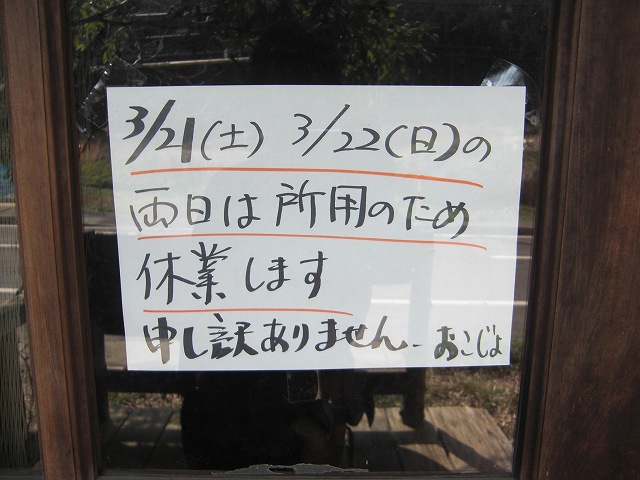 3/21(土) 3/22(日)の
両日は所用のため
休業します
申し訳ありません. おこじょ